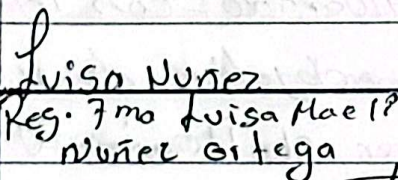 Luisa Nuñez
Reg. 7mo Luisa Mae
Nuñez Ortega